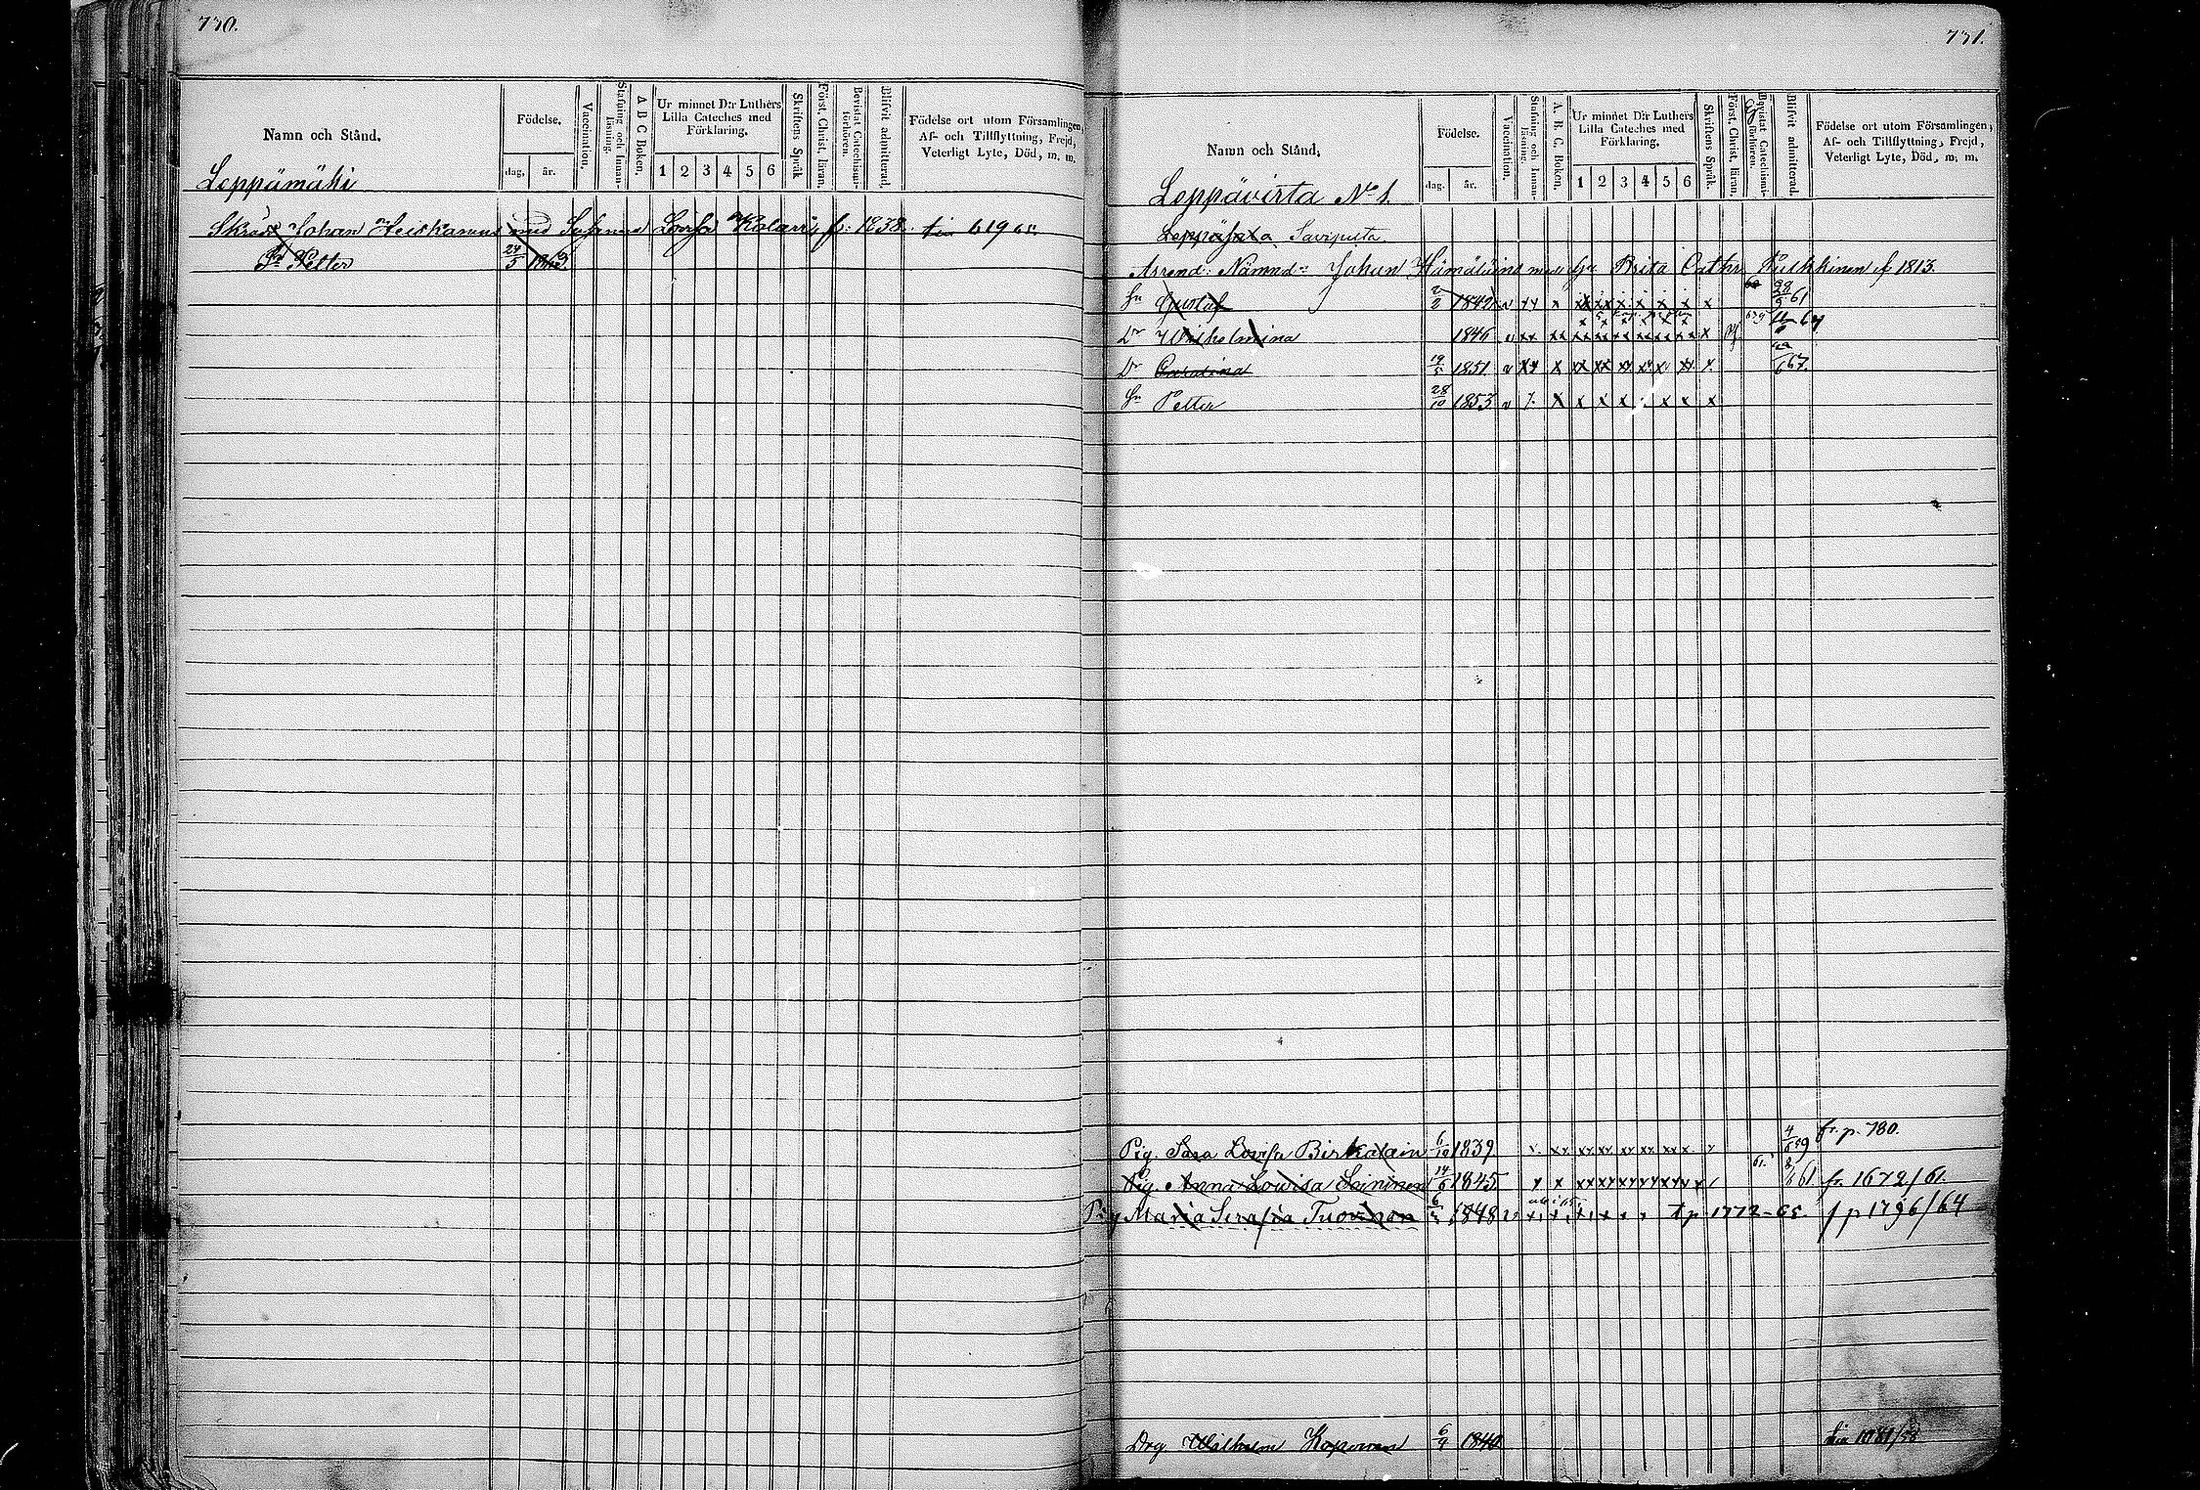 770.
Namn och Stånd.
Födelse.
dag, år.
Vaccination.
Stafning och Innanläsning.
A B C Boken.
Ur minnet D:r Luthers Lilla Cateches med Förklaring.
1 2 3 4 5 6
Skriftens Språk
Först. Christ. läran.
Bevistat Catechismiförhören.
Blifvit admitterad.
Födelse ort utom Församlingen, Af- och Tillflyttning, Frejd, Veterligt Lyte, Död, m. m.
Leppämäki
Johan Heiskanen med Susanna Lovisa f. 1838. 619
Sn Petter 24/5 1863.
771.
Namn och Stånd.
Födelse.
dag. år.
Vaccination.
Stafning och Innanläsning.
A. B. C. Boken.
Ur minnet D:r Luthers Lilla Cateches med Förklaring.
1 2 3 4 5 6
Skriftens Språk.
Först. Christ. läran.
Bevistat Catechismiförhören.
Blifvit admitterad.
Födelse ort utom Församlingen, Af- och Tillflyttning, Frejd, Veterligt Lyte, Död, m. m.
Leppävirta No 1.
Savipelto
Arrend: Nämnd: Johan Hämäläinen med Brita Cathr. Pulkkinen f 1813.
Sn Gustaf 2/2 1842 v xx x xx xx x x x x x 61
Dr Wilhelmina 1846 v xx xx xx xx xx xx xx xx x 64
Dr Carolina 19/5 1851 v xx x xx xx xx xx x xx x 67.
Sn Petter 28/10 1853 v x x x x x x x x
Pig. Sara Lovisa 6/10 1839 x xx xx xx xx x x x x 4/6 59 fr. p. 780.
Pig. Anna Lowisa Soininen 14/6 1845 x x xx xx xx xx xx xx 61. 8/6 61 fr. 1672/61.
Pig Maria Serafia Tuovinen 1848 v x x x x x t p 1772-65 f p 1796/64
Drg. Wilhelm Koponen 6/9 1840